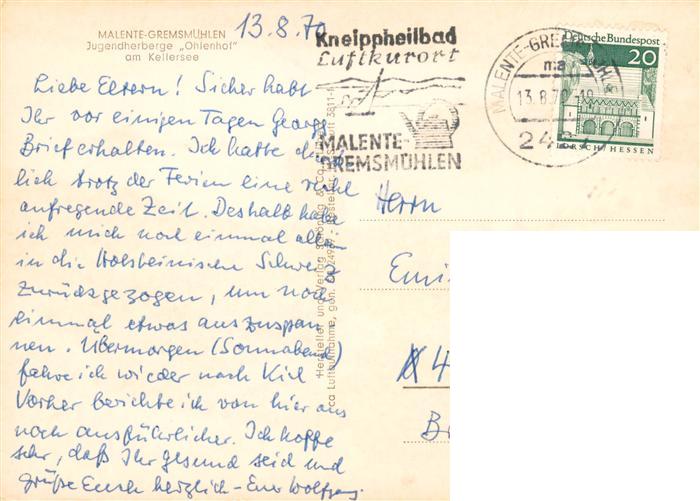 MALENTE-GREMSMÜHLEN
Jugendherberge „Ohlenhof"
am Kellersee
13.8.70
Liebe Eltern! Sicher habt
Ihr vor einigen Tagen Georgs
Brief erhalten. Ich hatte
lich trotz der Ferien eine recht
aufregende Zeit. Deshalb habe
ich mich noch einmal allein
in die Holsteinische Schweiz
zurückgezogen, um noch
einmal etwas auszuspan
nen. Übermorgen (Sonnabend)
fahre ich wieder nach Kiel
Vorher berichte ich von hier aus
noch ausführlicher. Ich hoffe
sehr, daß Ihr gesund seid und
grüße Euch herzlich – Euer Wolfgang
Hersteller und Verlag Schöning & Co
Kneippheilbad
Luftkurort
MALENTE-
GREMSMÜHLEN
13.8.70
Deutsche Bundespost
20
LORSCH/HESSEN
Herrn
Emi
4